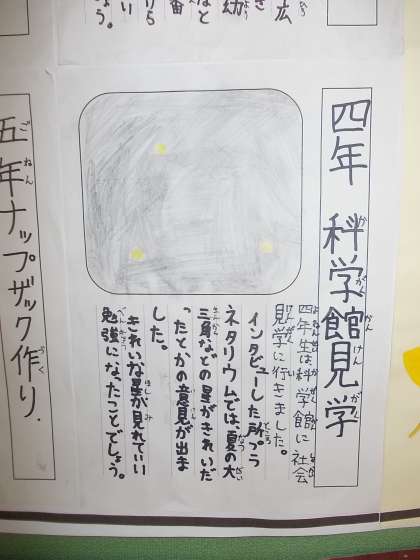 広
き
幼
なと
番
けら
い
う。
四年 科学館見学
四年生は科学館に社会
見学に行きました。
インタビューした所プラ
ネタリウムでは、夏の大
三角などの星がきれいだ
ったとかの意見が出ま
した。
きれいな星が見れていい
勉強になったことでしょう。
五年ナップザック作り